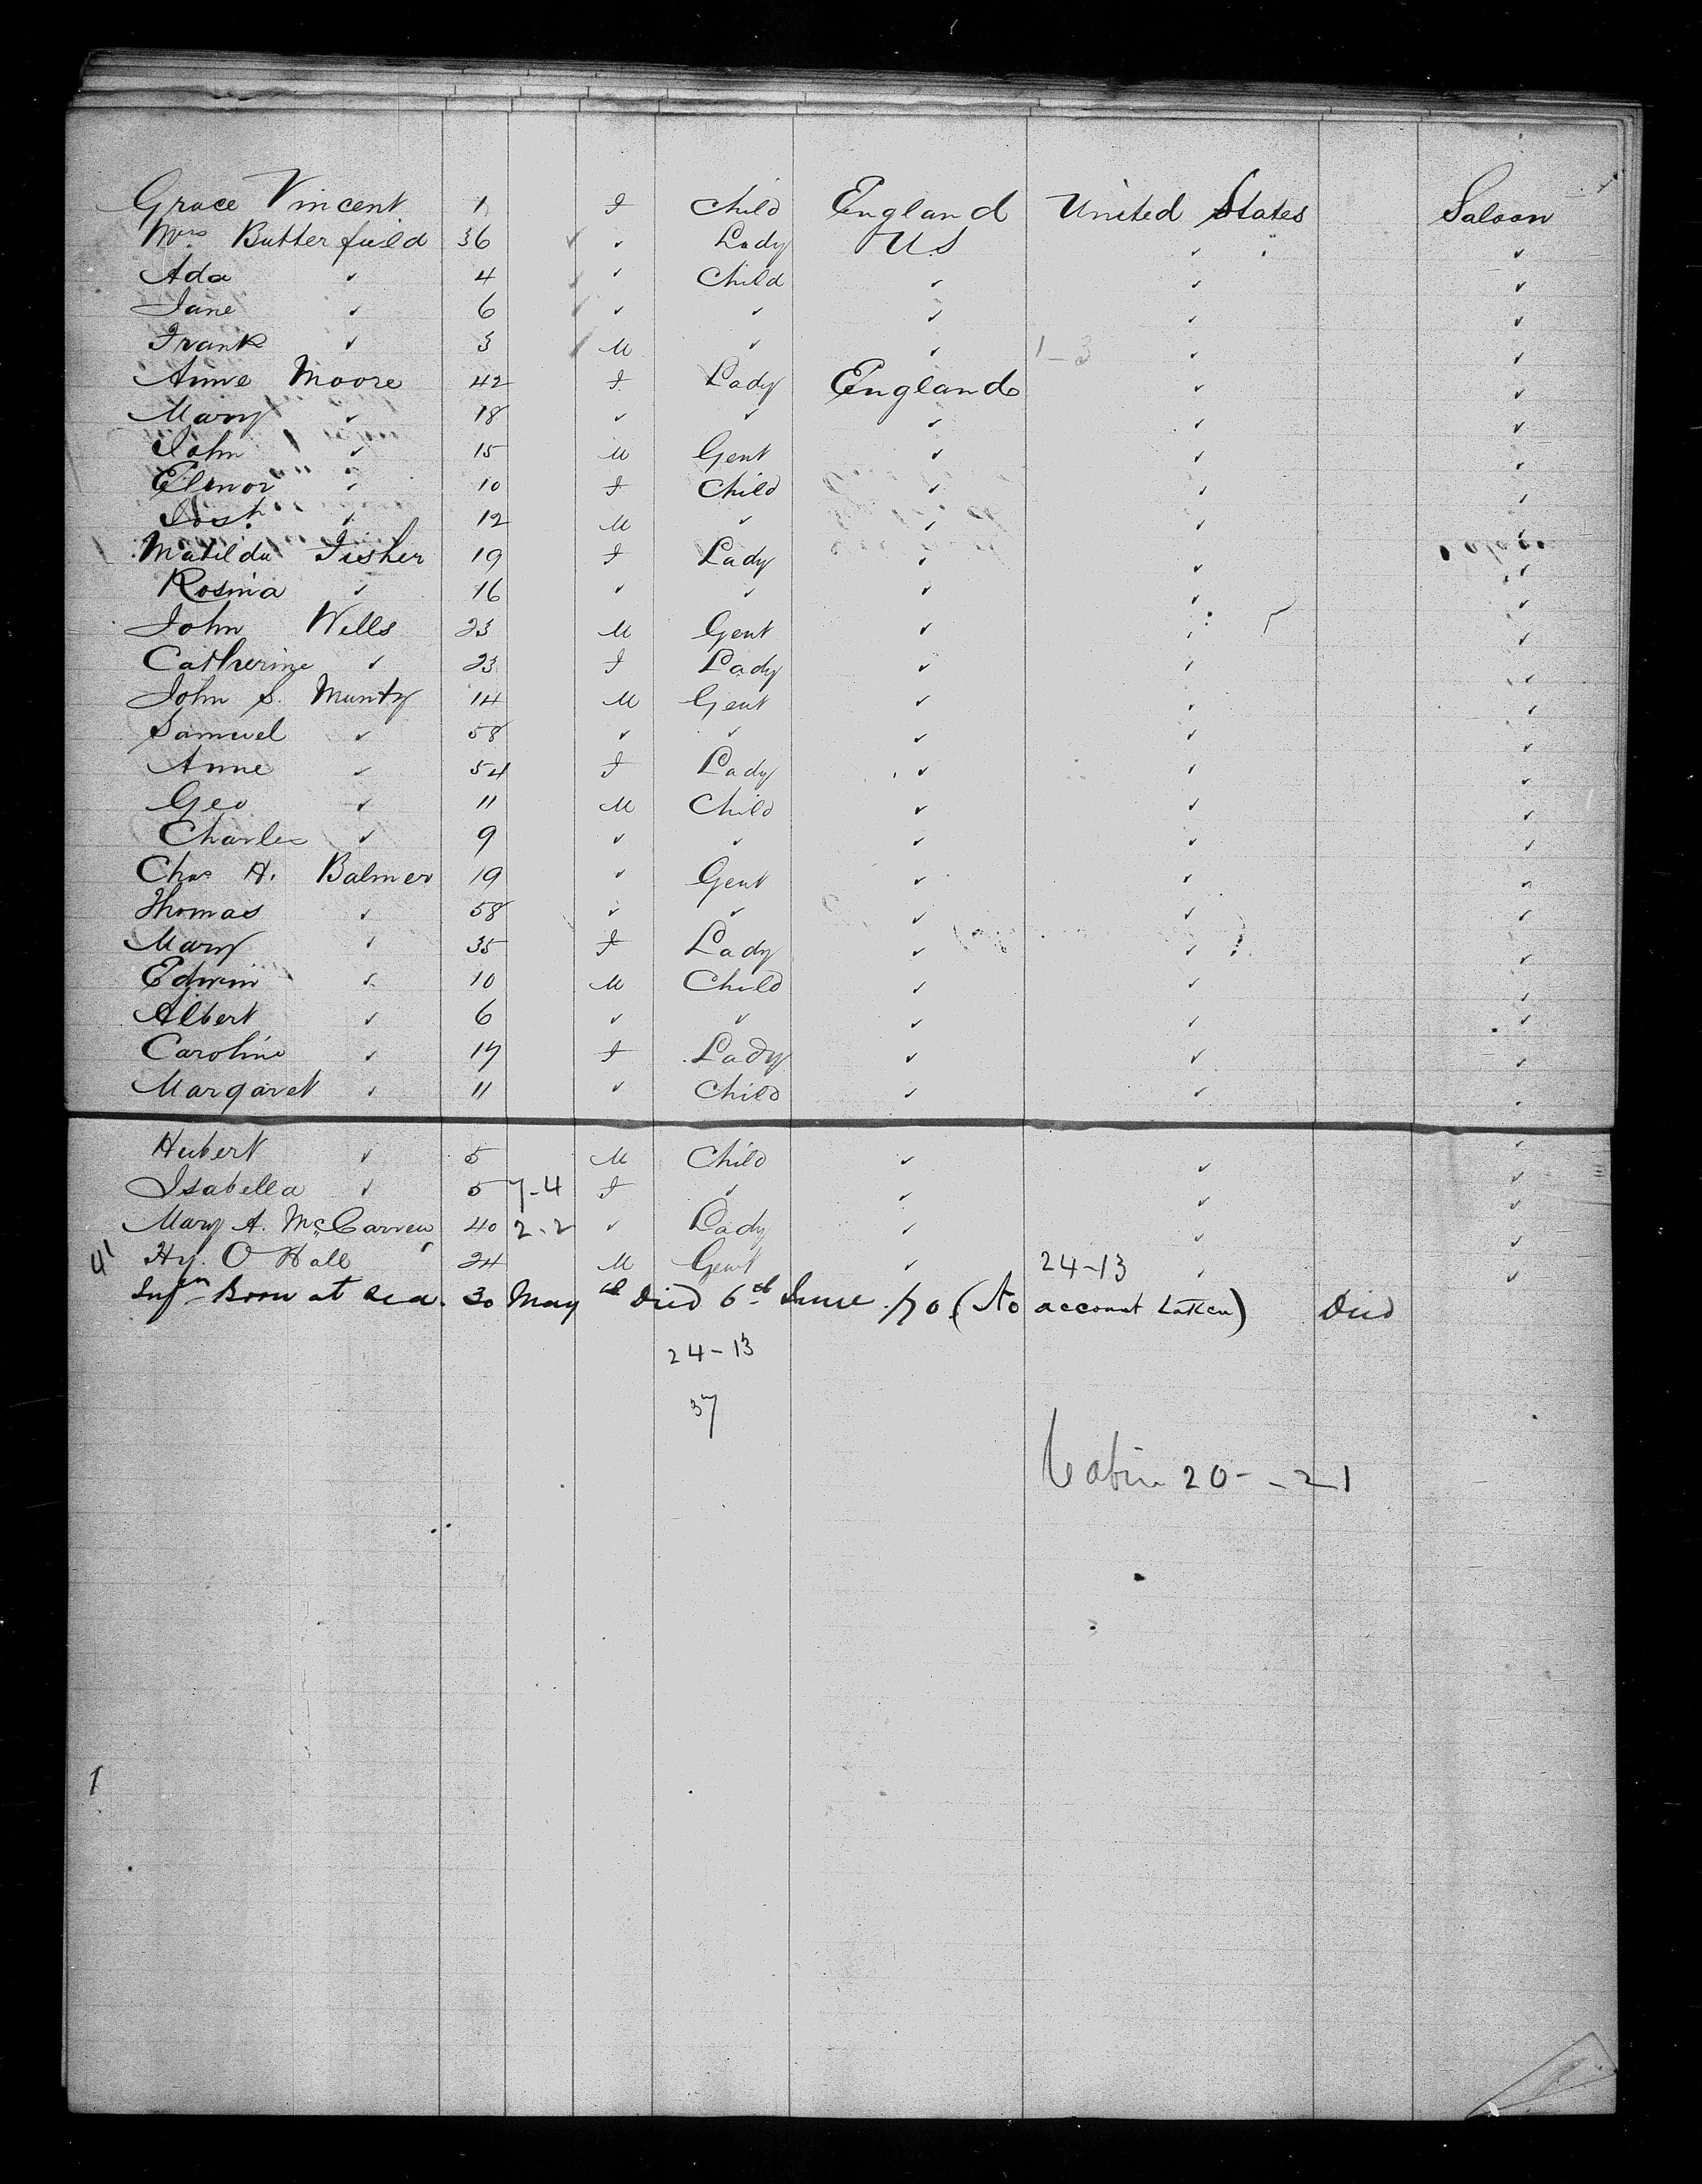 Grace Vincent 1 F Child England United States Saloon
Mrs Butterfield 36 ✓ ✓ Lady U.S ✓ ✓
Ada ✓ 4 ✓ Child ✓ ✓ ✓
Jane ✓ 6 ✓ ✓ ✓ ✓ ✓
Frank ✓ 3 M ✓ ✓ 1-3 ✓ ✓
Anne Moore 42 F Lady England ✓ ✓
Mary ✓ 18 ✓ ✓ ✓ ✓ ✓
John ✓ 15 M Gent ✓ ✓ ✓
Elenor ✓ 10 F Child ✓ ✓ ✓
Josh. ✓ 12 M ✓ ✓ ✓ ✓
Matilda Fisher 19 F Lady ✓ ✓ ✓
Rosina ✓ 16 ✓ ✓ ✓ ✓ ✓
John Wells 23 M Gent ✓ ✓ ✓
Catherine ✓ 23 F Lady ✓ ✓ ✓
John S. Muntz 14 M Gent ✓ ✓ ✓
Samuel ✓ 58 ✓ ✓ ✓ ✓ ✓
Anne ✓ 54 F Lady ✓ ✓ ✓
Geo ✓ 11 M Child ✓ ✓ ✓
Charles ✓ 9 ✓ ✓ ✓ ✓ ✓
Chas H. Balmer 19 ✓ Gent ✓ ✓ ✓
Thomas ✓ 58 ✓ ✓ ✓ ✓ ✓
Mary ✓ 35 F Lady ✓ ✓ ✓
Edwin ✓ 10 M Child ✓ ✓ ✓
Albert ✓ 6 ✓ ✓ ✓ ✓ ✓
Caroline ✓ 17 F Lady ✓ ✓ ✓
Margaret ✓ 11 ✓ Child ✓ ✓ ✓
Hubert ✓ 5 M Child ✓ ✓ ✓
Isabella ✓ 5 7-4 F ✓ ✓ ✓ ✓
Mary A. 40 2-2 ✓ Lady ✓ ✓ ✓
41 Hy. O Hall 24 M Gent ✓ 24-13 ✓ ✓
Inf Born at sea. 30 May Died 6th June /70 (No account taken) Died
24-13
37
Cabin 20 - - 21
1